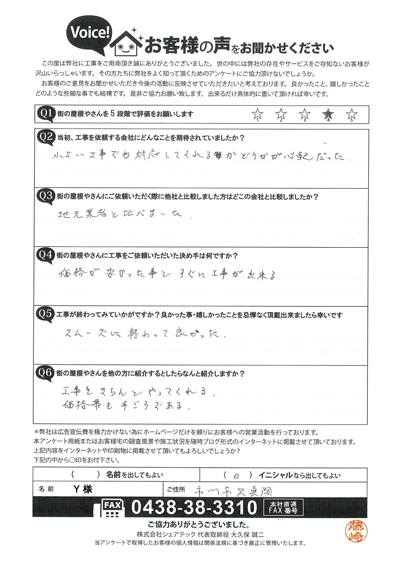 Voice!
お客様の声をお聞かせください
この度は弊社に工事をご用命頂き誠にありがとうございました。世の中には弊社の存在やサービスをご存知ないお客様が
沢山いらっしゃいます。その方たちに弊社をよく知って頂くためのアンケートにご協力頂けないでしょうか。
お客様のご意見をお聞かせいただき今後の活動に反映させていただきたいと考えております。良かったこと、嬉しかったこと
どのような些細な事でも結構です。是非ご協力お願い致します。出来るだけ具体的に書いて頂ければ幸いです。
Q1 街の屋根やさんを5段階で評価をお願いします ☆ ☆ ☆ ★ ☆
Q2 当初、工事を依頼する会社にどんなことを期待されていましたか?
小さい工事でも対応してくれるかどうかが心配だった
Q3 街の屋根やさんにご依頼いただく際に他社と比較しました方はどこの会社と比較しましたか?
地元業者と比べました
Q4 街の屋根やさんに工事をご依頼いただいた決め手は何ですか?
価格が安かった事と すぐに工事が出来る
Q5 工事が終わってみていかがですか?良かった事・嬉しかったことを忌憚なく頂戴出来ましたら幸いです
スムーズに終わって良かった。
Q6 街の屋根やさんを他の方に紹介するとしたらなんと紹介しますか?
工事をきちんとやってくれる。
価格帯も手ごろである。
※弊社は広告宣伝費を極力かけない為にホームページだけを頼りにお客様への営業活動を行っております。
本アンケート用紙またはお客様宅の調査風景や施工状況を随時ブログ形式のインターネットに掲載させて頂いております。
上記内容をインターネットや印刷物に掲載させて頂いてもよろしいでしょうか?
下記の中から〇印をお付下さい。
( ) 名前を出してもよい ( o ) イニシャルなら出してもよい
名前 Y様 ご住所 市川市
FAX 0438-38-3310 本社直通 FAX番号
ご協力ありがとうございました。
株式会社シェアテック 代表取締役 大久保 誠二
当アンケートで取得したお客様の個人情報は関係法規に基づき厳正に管理いたします。